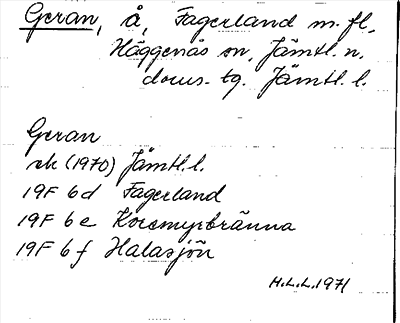 Geran, å, Fagerland m. fl.
Häggenås sn, Jämtl. n.
doms. tg. Jämtl. l.
Geran
ek (1970) Jämtl. l.
19F 6d Fagerland
19F 6e Korsmyrbränna
19F 6f Halasjön
H.L.L. 1971